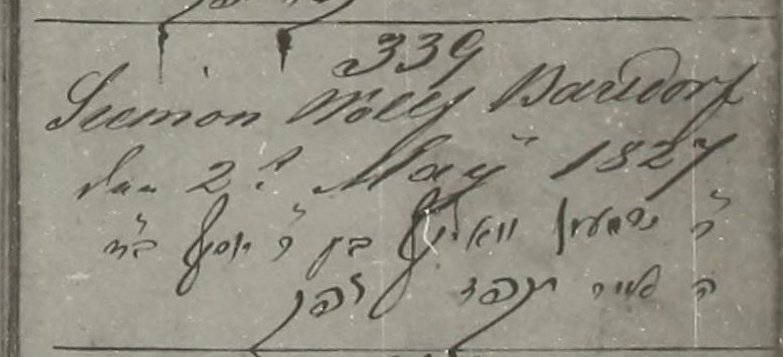 339
Siemon Wolff Barsdorf
den 2t May 1827
ר' שמעון וואלף בן ר' יוסף
ה אייר תקפז לפק